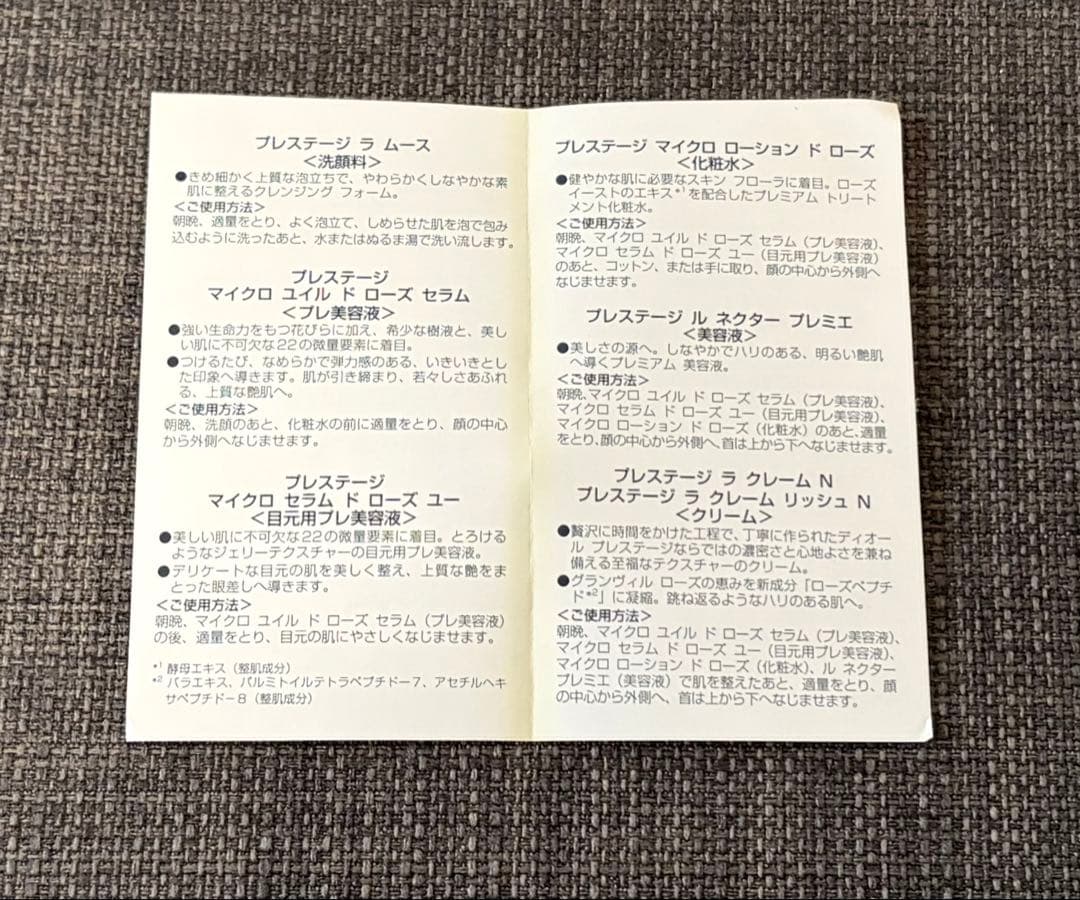 プレステージ ラ ムース
＜洗顔料＞
●きめ細かく上質な泡立ちで、やわらかくしなやかな素
肌に整えるクレンジング フォーム。
＜ご使用方法＞
朝晩、適量をとり、よく泡立て、しめらせた肌を泡で包み
込むように洗ったあと、水またはぬるま湯で洗い流します。
プレステージ
マイクロ ユイル ド ローズ セラム
＜プレ美容液＞
●強い生命力をもつ花びらに加え、希少な樹液と、美し
い肌に不可欠な22の微量要素に着目。
●つけるたび、なめらかで弾力感のある、いきいきとし
た印象へ導きます。肌が引き締まり、若々しさあふれ
る、上質な艶肌へ。
＜ご使用方法＞
朝晩、洗顔のあと、化粧水の前に適量をとり、顔の中心
から外側へなじませます。
プレステージ
マイクロ セラム ド ローズ ユー
＜目元用プレ美容液＞
●美しい肌に不可欠な22の微量要素に着目。とろける
ようなジェリーテクスチャーの目元用プレ美容液。
●デリケートな目元の肌を美しく整え、上質な艶をま
とった眼差しへ導きます。
＜ご使用方法＞
朝晩、マイクロ ユイル ド ローズ セラム（プレ美容液）
の後、適量をとり、目元の肌にやさしくなじませます。
*1 酵母エキス（整肌成分）
*2 バラエキス、パルミトイルテトラペプチド－7、アセチルヘキ
サペプチド－8（整肌成分）
プレステージ マイクロ ローション ド ローズ
＜化粧水＞
●健やかな肌に必要なスキン フローラに着目。ローズ
イーストのエキス*1を配合したプレミアム トリート
メント化粧水。
＜ご使用方法＞
朝晩、マイクロ ユイル ド ローズ セラム（プレ美容液）、
マイクロ セラム ド ローズ ユー（目元用プレ美容液）
のあと、コットン、または手に取り、顔の中心から外側へ
なじませます。
プレステージ ル ネクター プレミエ
＜美容液＞
●美しさの源へ。しなやかでハリのある、明るい艶肌
へ導くプレミアム 美容液。
＜ご使用方法＞
朝晩、マイクロ ユイル ド ローズ セラム（プレ美容液）、
マイクロ セラム ド ローズ ユー（目元用プレ美容液）、
マイクロ ローション ド ローズ（化粧水）のあと、適量
をとり、顔の中心から外側へ、首は上から下へなじませます。
プレステージ ラ クレーム N
プレステージ ラ クレーム リッシュ N
＜クリーム＞
●贅沢に時間をかけた工程で、丁寧に作られたディオー
ル プレステージならではの濃密さと心地よさを兼ね
備える至福なテクスチャーのクリーム。
●グランヴィル ローズの恵みを新成分「ローズペプチ
ド*2」に凝縮。跳ね返るようなハリのある肌へ。
＜ご使用方法＞
朝晩、マイクロ ユイル ド ローズ セラム（プレ美容液）、
マイクロ セラム ド ローズ ユー（目元用プレ美容液）、
マイクロ ローション ド ローズ（化粧水）、ル ネクター
プレミエ（美容液）で肌を整えたあと、適量をとり、顔
の中心から外側へ、首は上から下へなじませます。